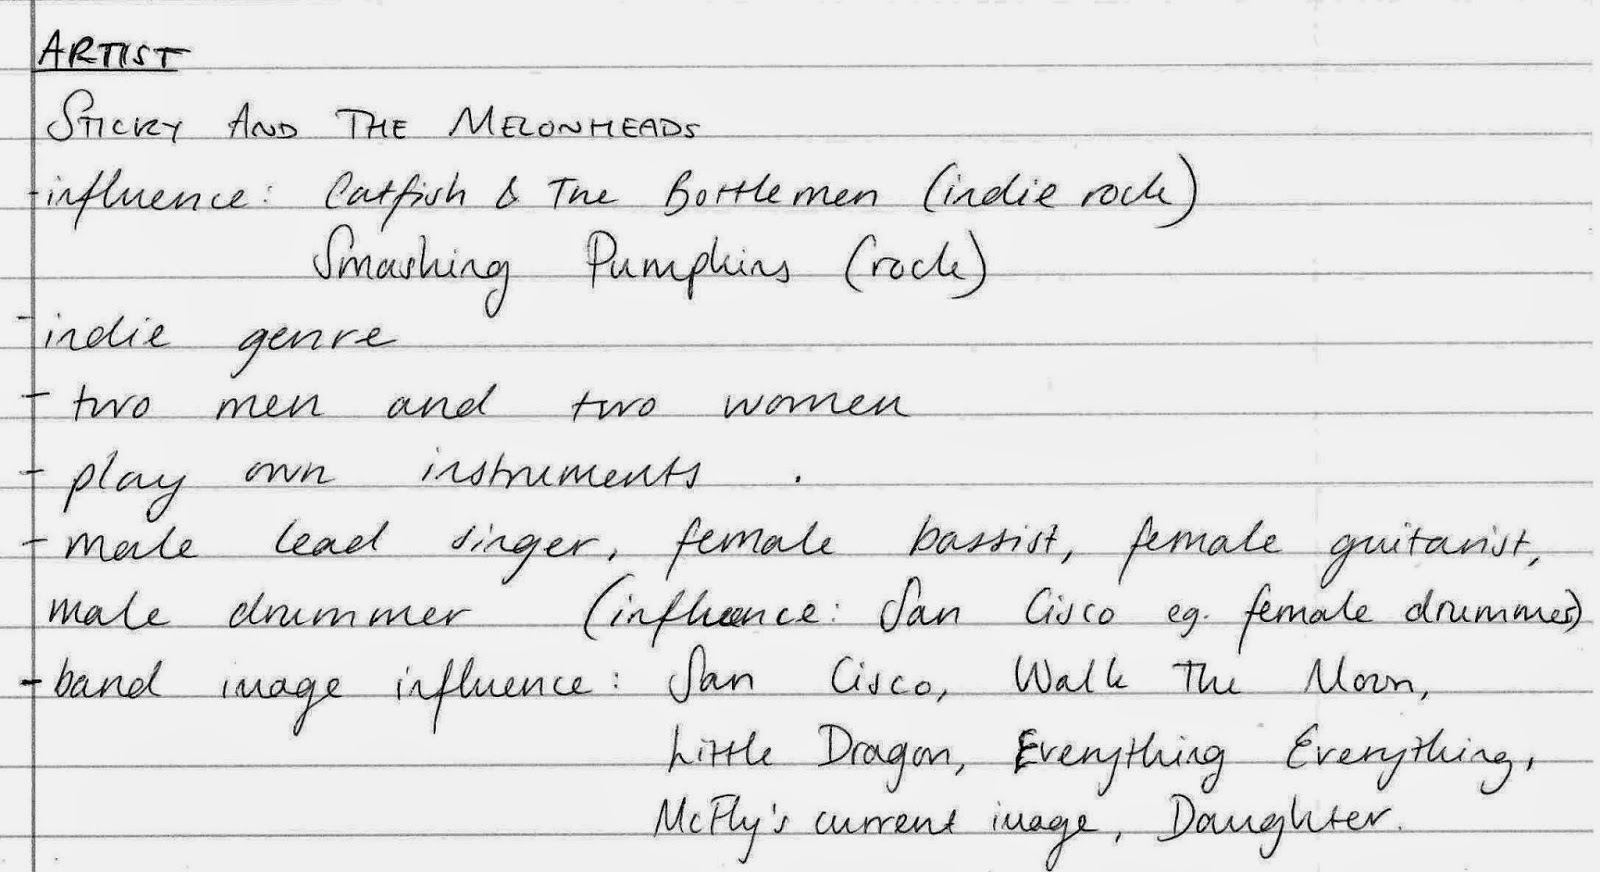 ARTIST
STICKY AND THE MELONHEADS
- influence: Catfish & The Bottlemen (indie rock)
Smashing Pumpkins (rock)
- indie genre
- two men and two women
- play own instruments.
- male lead singer, female bassist, female guitarist,
male drummer (influence: San Cisco eg. female drummer)
- band image influence: San Cisco, Walk The Moon,
Little Dragon, Everything Everything,
McFly's current image, Daughter.